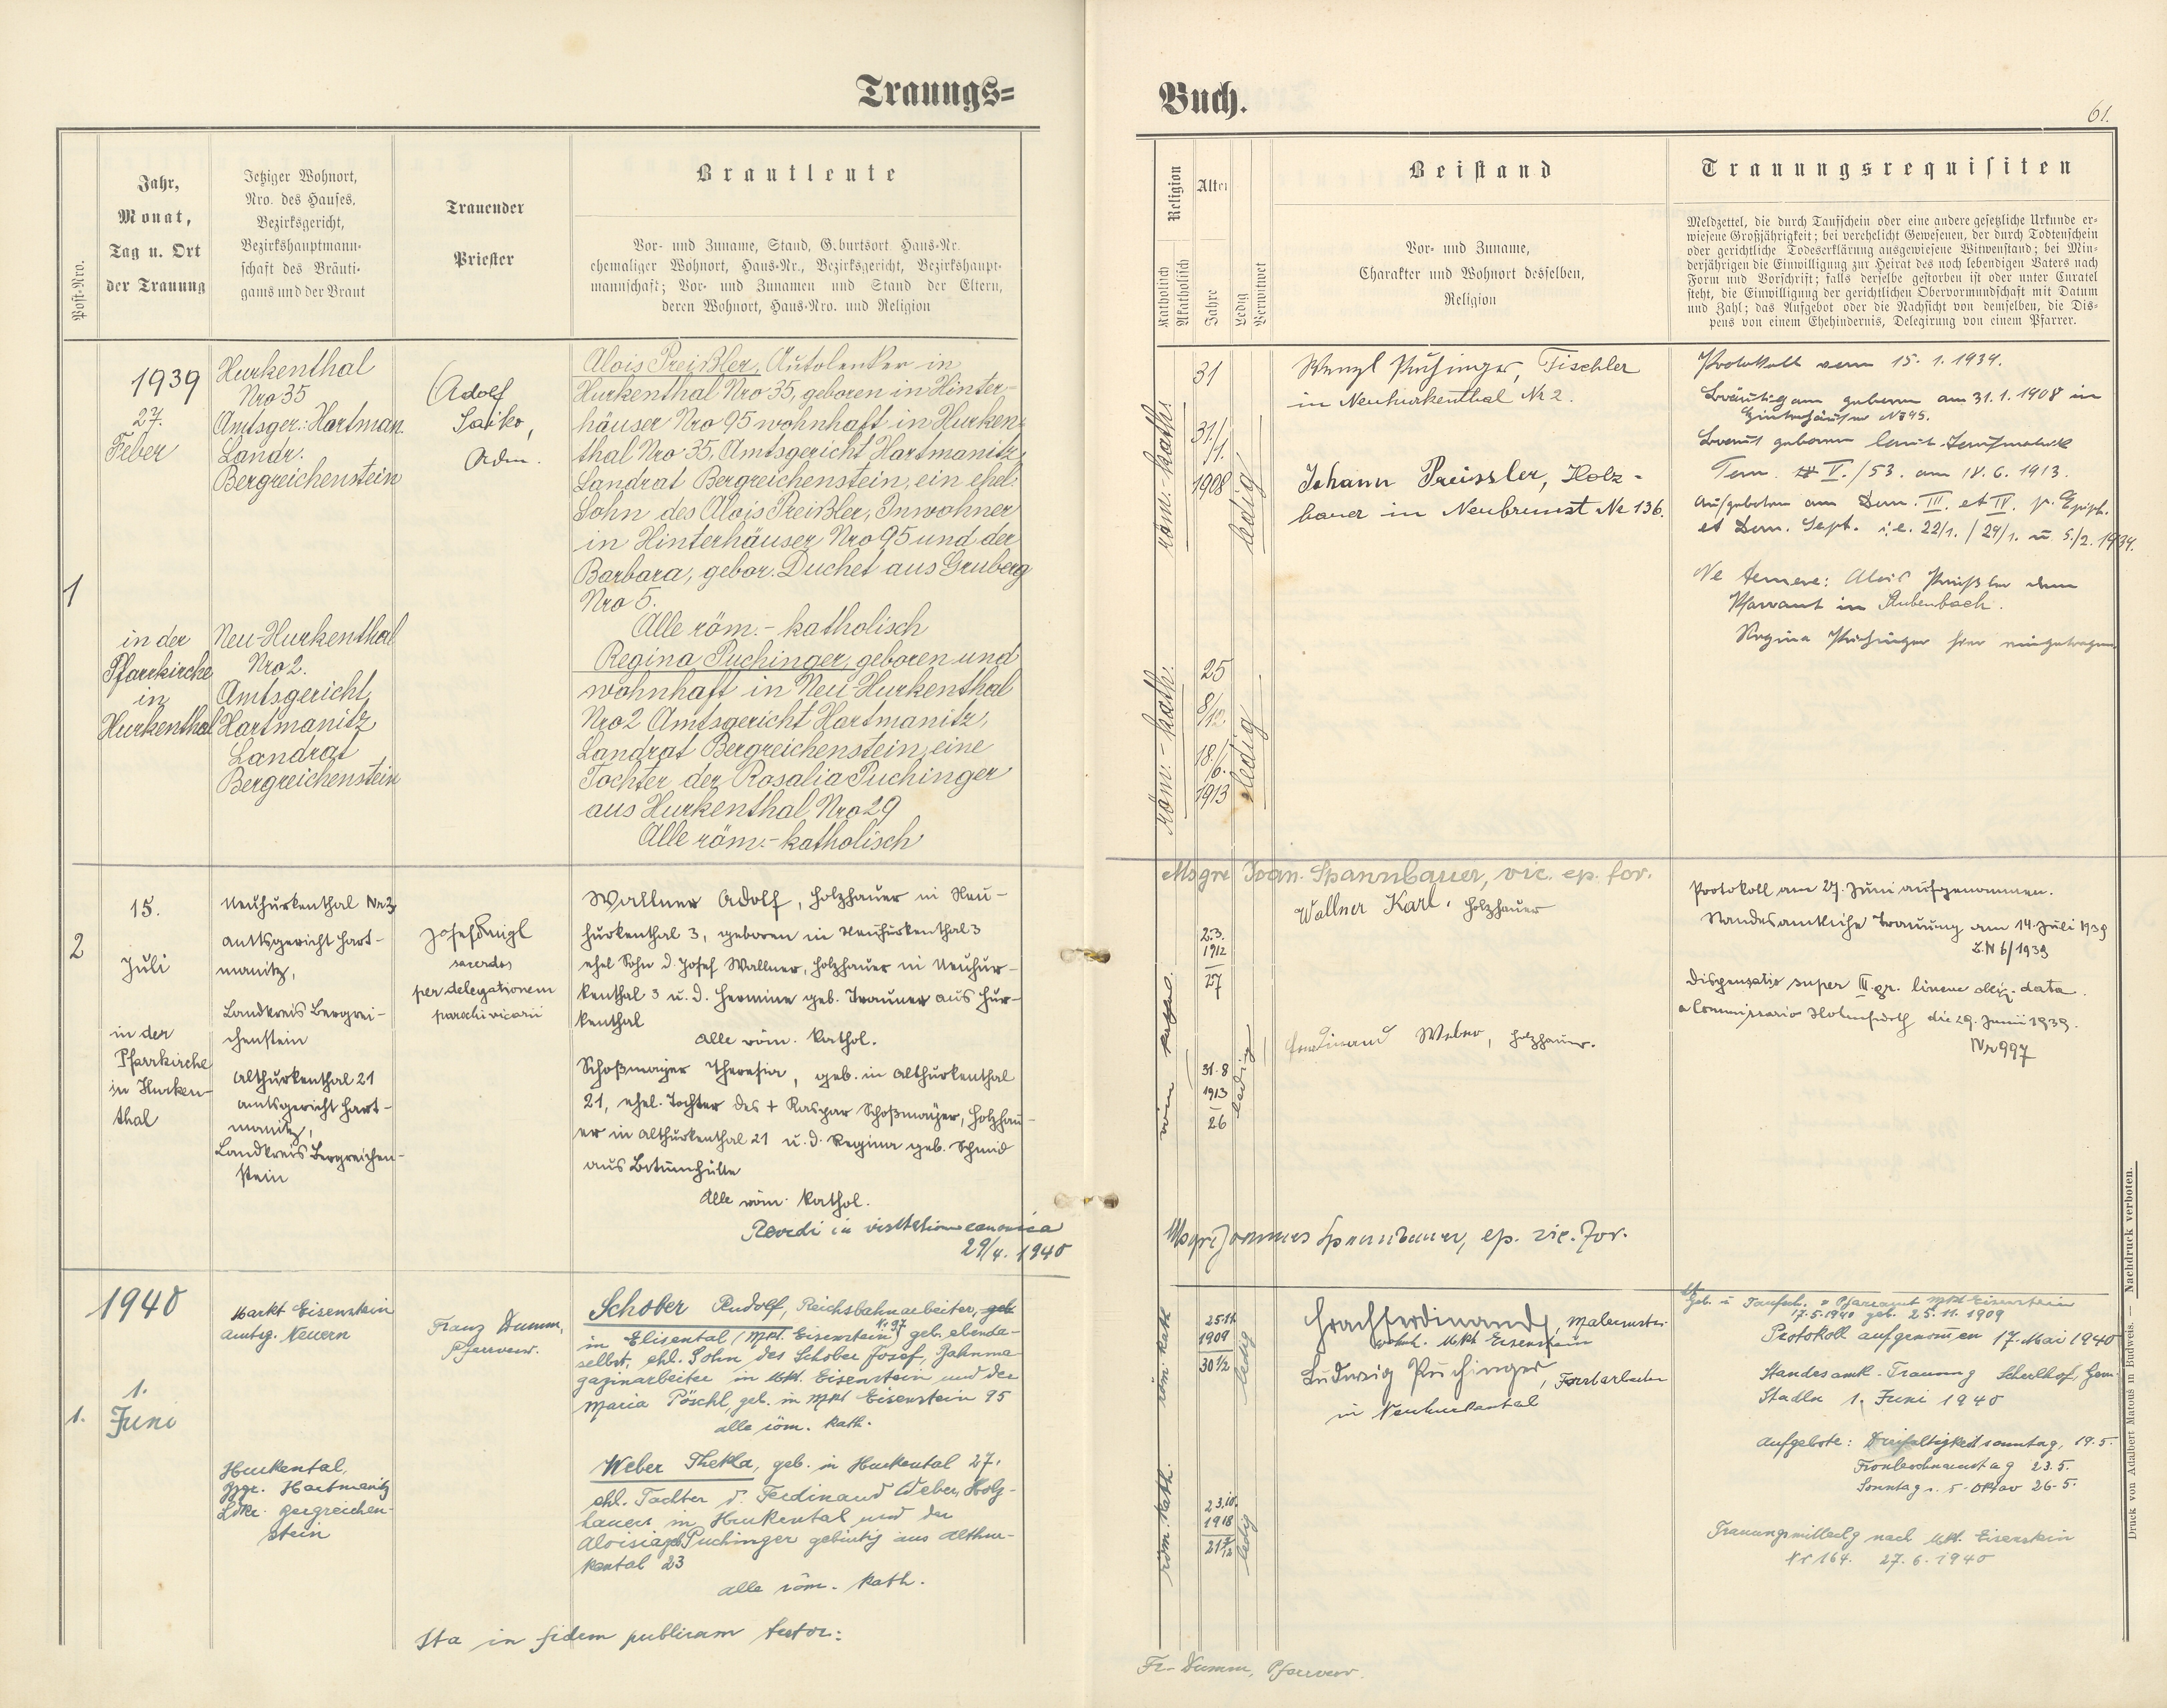 Trauungs=
Buch.
61.
Post-Nro.
Jahr,
Monat,
Tag u. Ort
der Trauung
Jetziger Wohnort,
Nro. des Hauses,
Bezirksgericht,
Bezirkshauptmann-
schaft des Bräuti-
gams und der Braut
Trauender
Priester
Brautleute
Vor- und Zuname, Stand, Geburtsort, Haus-Nr.
ehemaliger Wohnort, Haus-Nr., Bezirksgericht, Bezirkshaupt-
mannschaft; Vor- und Zunamen und Stand der Eltern,
deren Wohnort, Haus-Nro. und Religion
Religion
Katholisch
Akatholisch
Alter
Jahre
Ledig
Verwitwet
Beistand
Vor- und Zuname,
Charakter und Wohnort desselben,
Religion
Trauungsrequisiten
Meldzettel, die durch Taufschein oder eine andere gesetzliche Urkunde er-
wiesene Großjährigkeit; bei verehelicht Gewesenen, der durch Todtenschein
oder gerichtliche Todeserklärung ausgewiesene Witwenstand; bei Min-
derjährigen die Einwilligung zur Heirat des noch lebendigen Vaters nach
Form und Vorschrift; falls derselbe gestorben ist oder unter Curatel
steht, die Einwilligung der gerichtlichen Obervormundschaft mit Datum
und Zahl; das Aufgebot oder die Nachsicht von demselben, die Dis-
pens von einem Ehehindernis, Delegirung von einem Pfarrer.
1
1939
27.
Feber
in der
Pfarrkirche
in
Hurkenthal
Hurkenthal
Nro 35
Amtsger.: Hartman.
Landr.
Bergreichenstein
Neu-Hurkenthal
Nro 2.
Amtsgericht
Hartmanitz
Landrat
Bergreichenstein
Adolf
Saiko,
Adm.
Alois Preißler, Autolenker in
Hurkenthal Nro 35, geboren in Hinter-
häuser Nro 95 wohnhaft in Hurken-
thal Nro 35, Amtsgericht Hartmanitz
Landrat Bergreichenstein, ein ehel.
Sohn des Alois Preißler, Inwohner
in Hinterhäuser Nro 95 und der
Barbara, gebor. Duchet aus Gruberg
Nro 5.
Alle röm.- katholisch
Regina Puchinger, geboren und
wohnhaft in Neu-Hurkenthal
Nro 2 Amtsgericht Hartmanitz,
Landrat Bergreichenstein, eine
Tochter der Rosalia Puchinger
aus Hurkenthal Nro 29
Alle röm.- katholisch
röm.-kath.
31
31./
1.
1908
ledig
röm.-kath.
25
8/12.
18./
6.
1913
ledig
Wenzl Puchinger, Tischler
in Neuhurkenthal Nr 2.
Johann Preissler, Holz-
hauer in Neubrunst Nr 136.
Protokoll vom 15. 1. 1939.
Bräutigam geboren am 31. 1. 1908 in
Hinterhäuser N 95.
Braut geboren laut Taufmatrik
Tom. V./53. am 18. 6. 1913.
Aufgeboten am Dom. III. et IV. p. Epiph.
et Dom. Sept. i. e. 22/1. / 29/1. u. 5./2. 1939.
Ne temere: Alois Preißler dem
Pfarramt in Stubenbach.
Regina Puchinger hier eingetragen
2
15.
Juli
in der
Pfarrkirche
in Hurken-
thal
Neuhurkenthal Nr 3
Amtsgericht Hart-
manitz,
Landkreis Bergrei-
chenstein
Althurkenthal 21
Amtsgericht Hart-
manitz,
Landkreis Bergreichen-
stein
Josef
sacerdos
per delegationem
parochi vicarii
Wallner Adolf, Holzhauer in Neu-
hurkenthal 3, geboren in Neuhurkenthal 3
ehel Sohn d. Josef Wallner, Holzhauer in Neuhur-
kenthal 3 u. d. Hermine geb. Trauner aus Hur-
kenthal
Alle röm. kathol.
Schoßmaijer Theresia, geb. in Althurkenthal
21, ehel. Tochter des + Kaspar Schoßmaijer, Holzhau-
er in Althurkenthal 21 u. d. Regina geb. Schmid
aus
Alle röm. kathol.
Revidi in visitatione canonica
29/4. 1940
Msgre Joan. Spannbauer, vic. ep. for.
2.3.
1912
27
31.8
1913
26
ledig
Wallner Karl, Holzhauer
Ferdinand Weber, Holzhauer.
Msgre Joannes Spannbauer, ep. vic. for.
Protokoll am 27. Juni aufgenommen.
Standesamtliche Trauung am 14. Juli 1939
Z. N 6/1939
Dispensatio super III gr. lineae data
a Commissario die 29. Junii 1939.
Nr 997
1940
1.
1.
Juni
Markt Eisenstein
Amtsg. Neuern
Hurkental,
Bzgr. Hartmanitz
Ldkr. Bergreichen-
stein
Franz Dumm,
Pfarrverw.
Schober Rudolf, Reichsbahnarbeiter, geb.
in Elisental (Mrkt. Eisenstein) Nr. 37 geb. ebenda-
selbst, ehl. Sohn des Schober Josef, Bahnma-
gazinarbeiter in Mkt. Eisenstein und der
Maria Pöschl, geb. in Mrkt Eisenstein 95
alle röm. kath.
Weber Thekla, geb. in Hurkental 27,
ehl. Tochter d. Ferdinand Weber, Holz-
hauers in Hurkental und der
Aloisia geb. Puchinger gebürtig aus Althur-
kental 23
alle röm. kath.
Ita in fidem publicam testor:
röm. kath
25.11.
1909
30 1/2
ledig
röm. kath.
23.10.
1918
21 7/12
ledig
Ferdinand, Malermstr.
wohnh. Mkt Eisenstein
Ludwig Puchinger, Forstarbeiter
in Neuhurkental
Geb. u Taufsch. v Pfarramt Mrkt Eisenstein
17.5.1940 geb. 25.11.1909
Protokoll aufgenomen 17. Mai 1940
Standesamt. Trauung Scherlhof, Gem.
Stadln 1. Juni 1940
Aufgebote: Dreifaltigkeitsonntag, 19.5.
Fronleichnamstag 23.5.
Sonntag i. d. Oktav 26.5.
Trauungsmitteilg nach Mkt. Eisenstein
Nr 164. 27.6.1940
Fr. Dumm, Pfarrverw.
Druck von Adalbert Matouš in Budweis. — Nachdruck verboten.